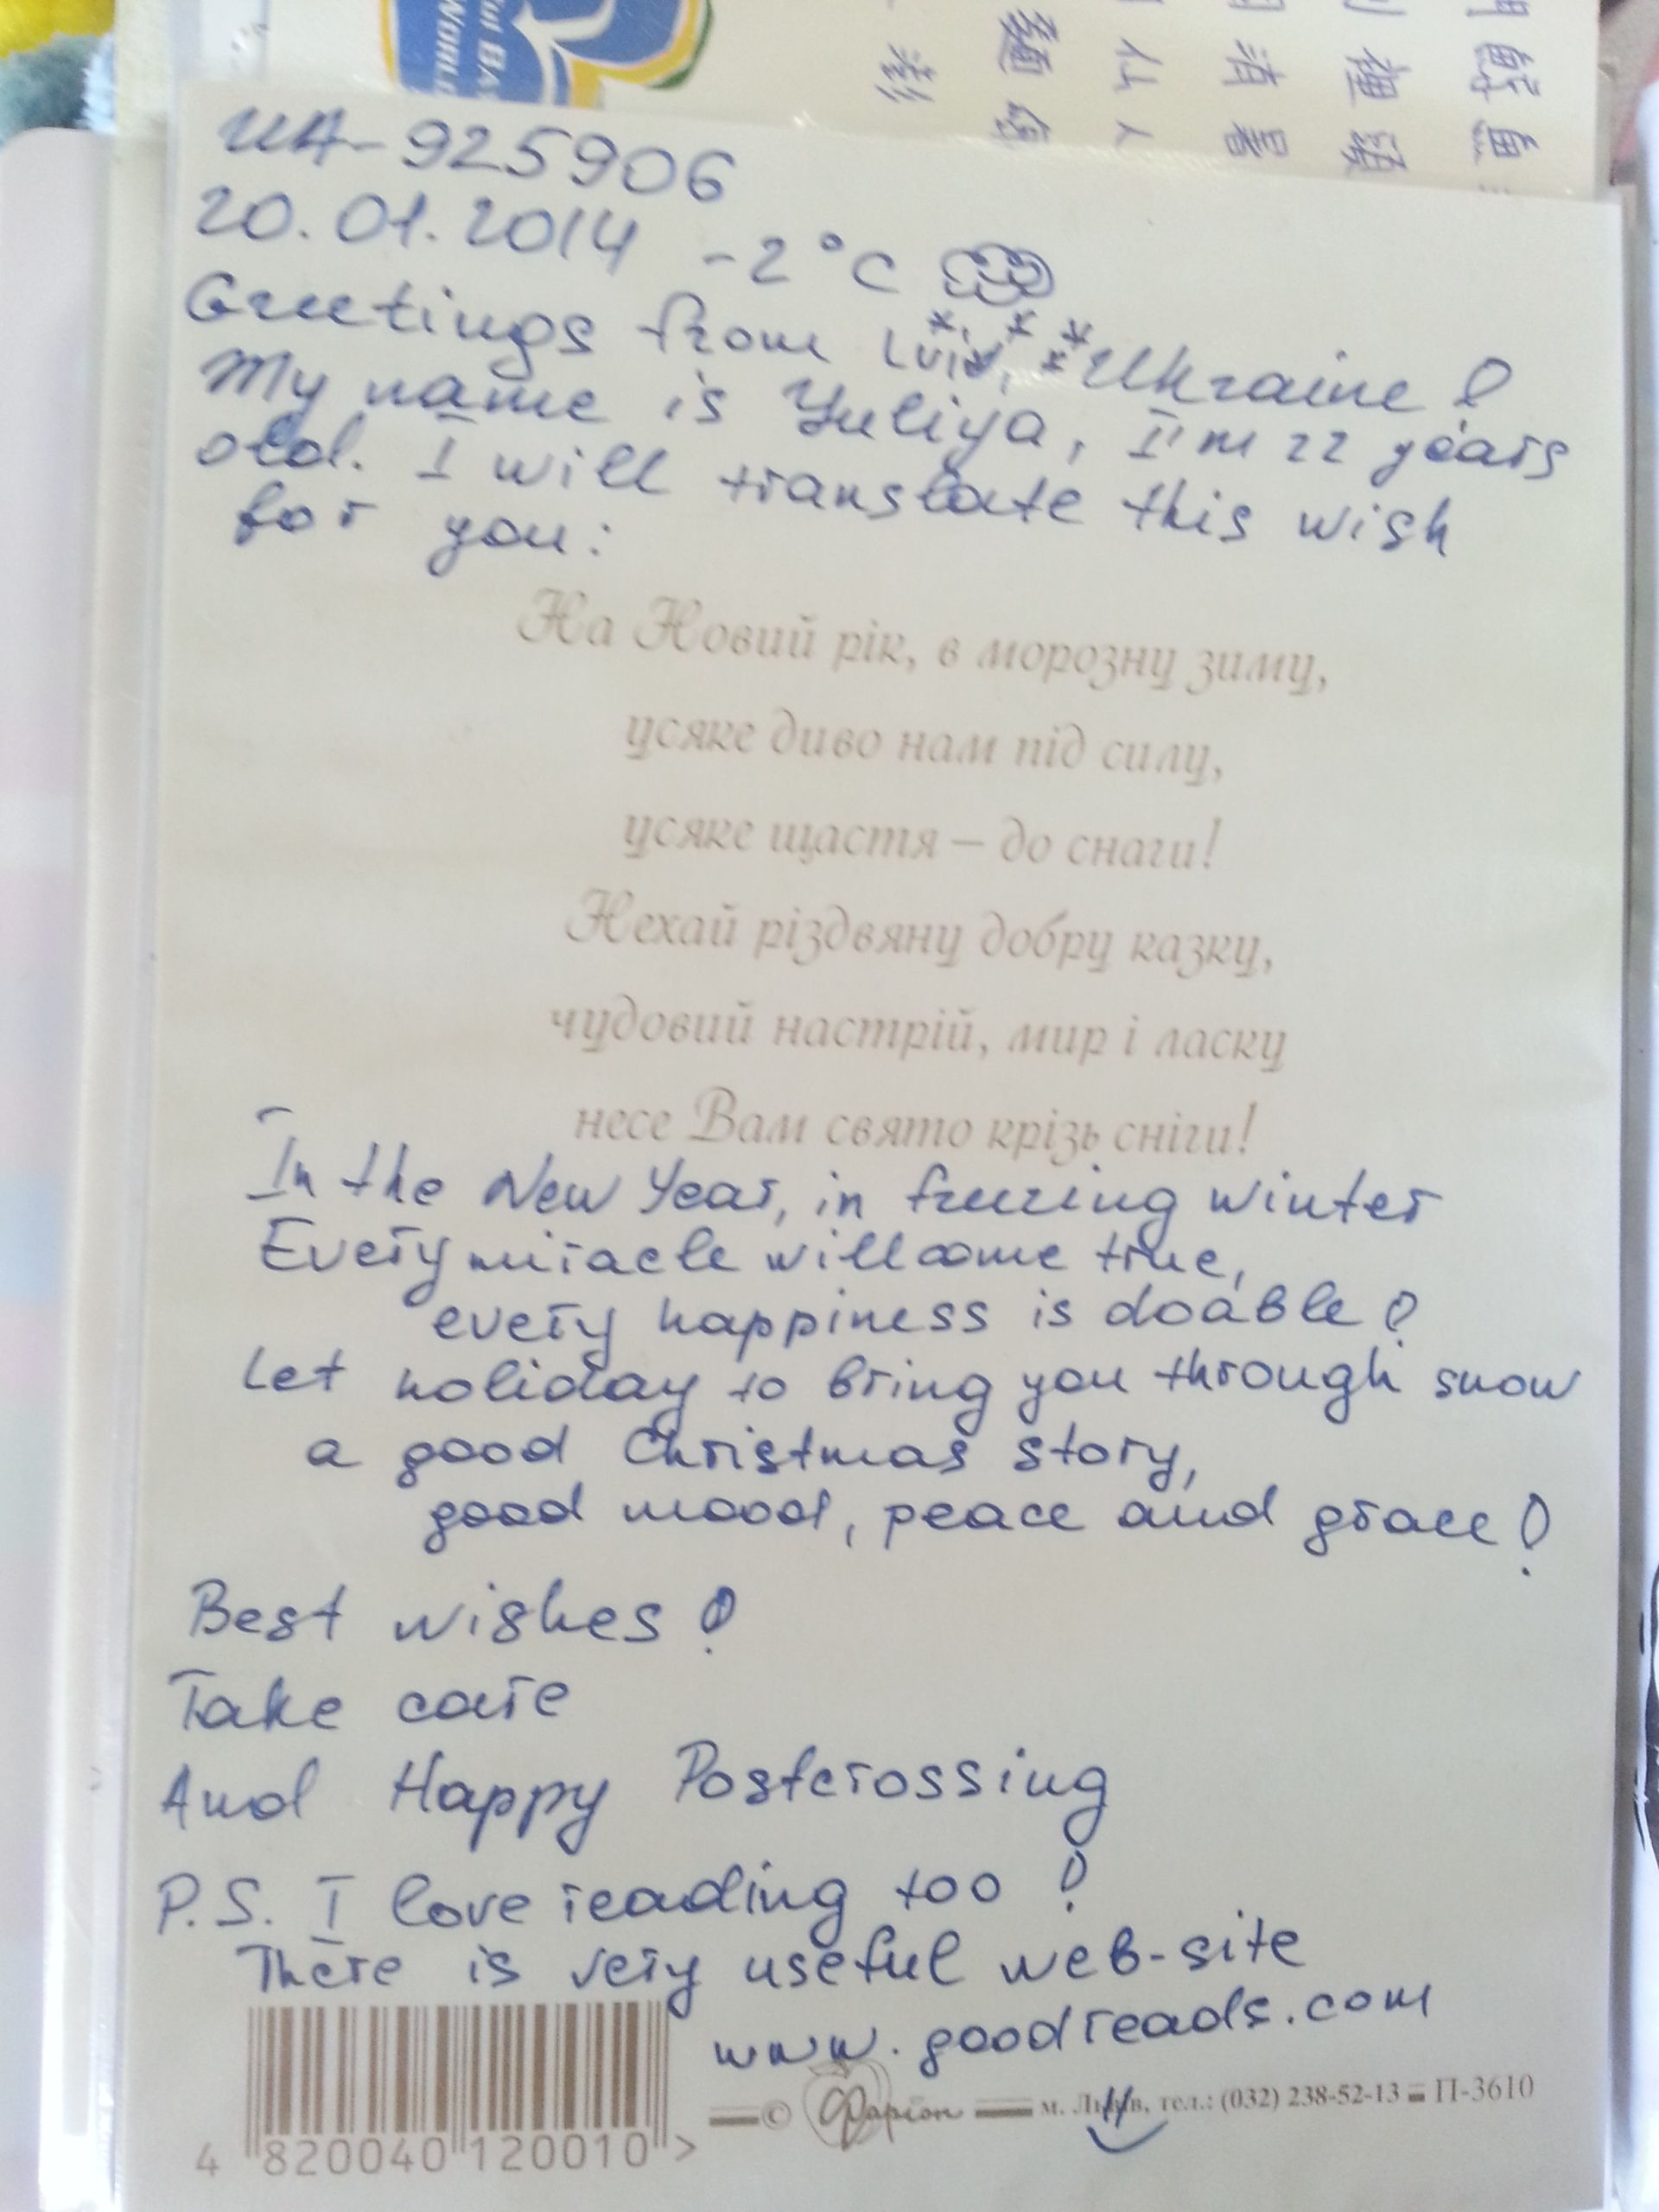 WORLD
UA-925906
20.01.2014 -2°C
Greetings from Lviv, Ukraine!
My name is Yuliya, I'm 22 years
old. I will translate this wish
for you:
На Новий рік, в морозну зиму,
усяке диво нам під силу,
усяке щастя – до снаги!
Нехай різдвяну добру казку,
чудовий настрій, мир і ласку
несе Вам свято крізь сніги!
In the New Year, in freezing winter
Every miracle will come true,
every happiness is doable!
Let holiday to bring you through snow
a good Christmas story,
good mood, peace and grace!
Best wishes!
Take care
And Happy Postcrossing
P.S. I love reading too!
There is very useful web-site
www.goodreads.com
© Папіон м. Львів, тел.: (032) 238-52-13 П-3610
4 820040 120010 >